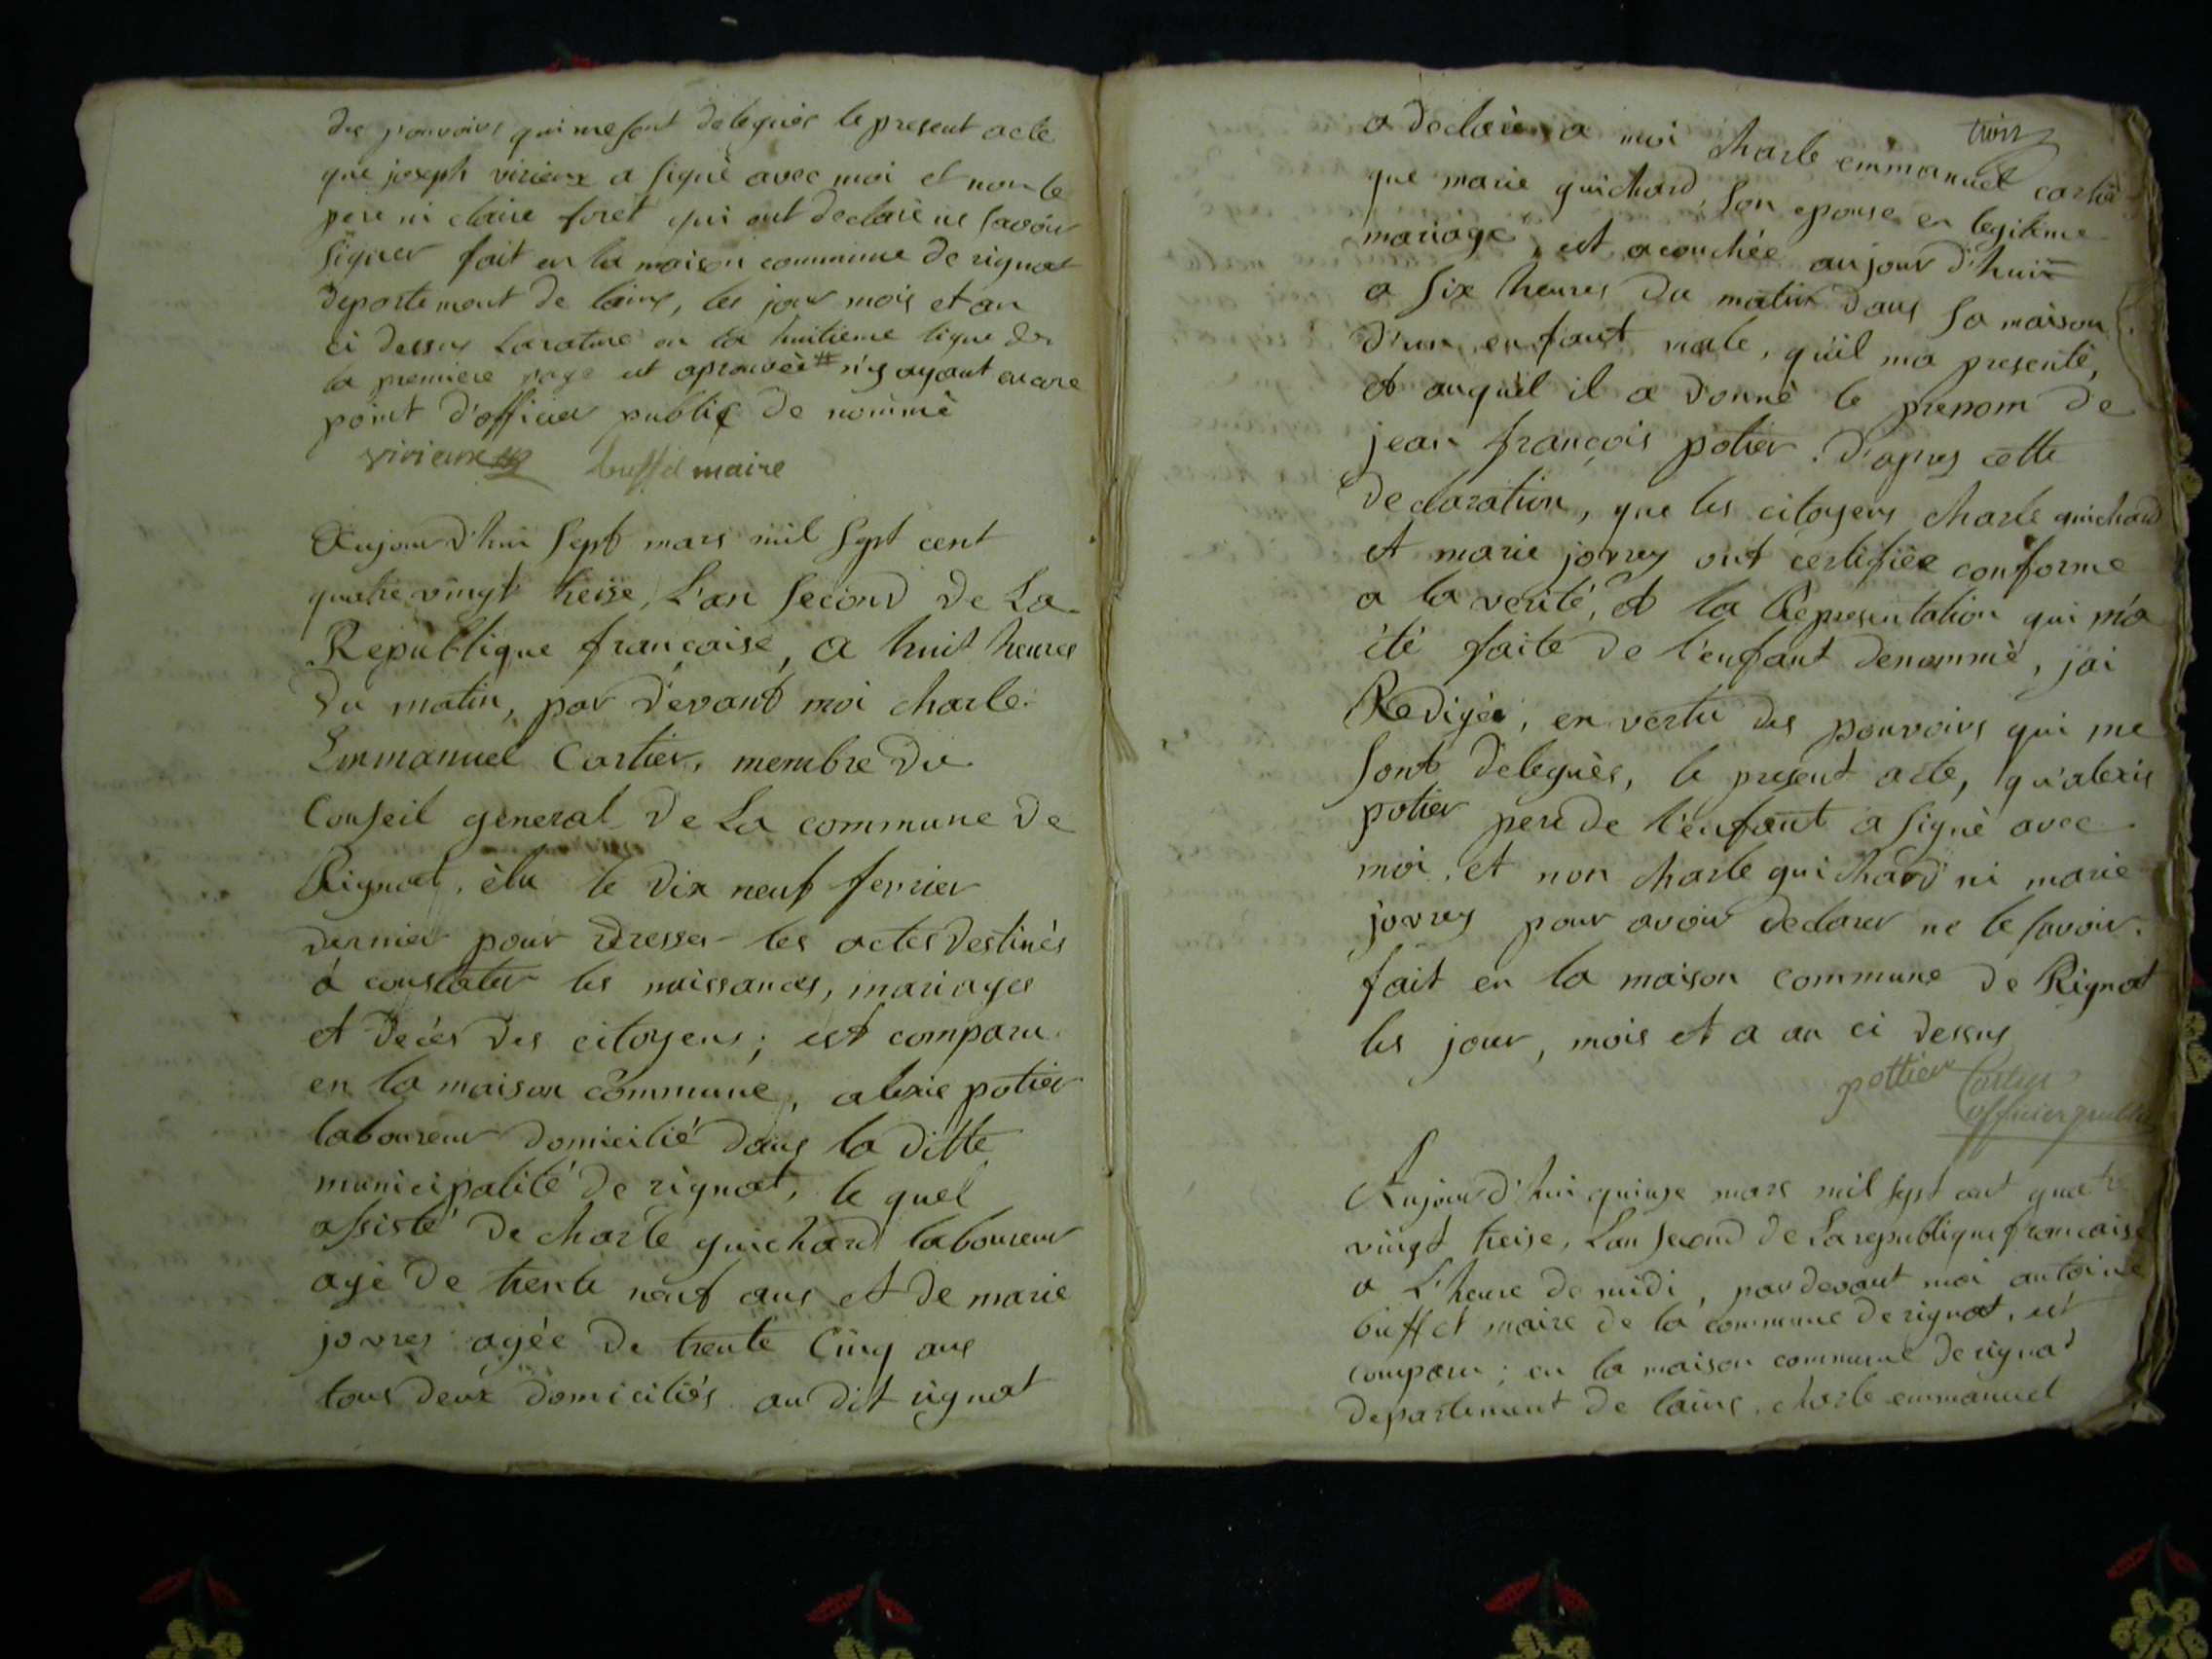 des pouvoirs qui me sont delegués le present acte
que joseph virieux a signé avec moi et non le
pere ni claire foret qui ont declaré ne savoir
signer fait en la maison commune de rignat
departement de lains, les jour mois et an
ci dessus La rature en la huitieme ligne de
la premiere page est aprouvée # n'y ayant encore
point d'officier public de nommé
virieux buffet maire
Aujourd'hui sept mars mil sept cent
quatre vingt treise, L'an second de La
Republique francaise, a huit heures
du matin, par devant moi charle
Emmanuel Cartier, membre du
Conseil general de La commune de
Rignat, élu le dix neuf fevrier
dernier pour dresser les actes destinés
à constater les naissances, mariages
et decés des citoyens; est comparu
en la maison commune, alexis potier
laboureur domicilié dans la ditte
municipalité de rignat, le quel
assisté de charle guichard laboureur
agé de trente neuf ans et de marie
jovrey agée de trente cinq ans
tous deux domiciliés au dit rignat
trois
a declaré a moi charle emmanuel cartier
que marie guichard, son epouse en legitime
mariage, est acouchée aujour d'hui
a six heures du matin dans sa maison
d'un enfant male, qu'il ma presenté,
et auquel il a donné le prenom de
jean françois potier. d'apres cette
declaration, que les citoyens charle guichard
et marie jovrey ont certifiée conforme
a la verité, et la Representation qui m'a
été faite de l'enfant denommé, j'ai
Redigée, en vertu des pouvoirs qui me
sont delegués, le present acte, qu'alexis
potier pere de l'enfant a signé avec
moi, et non charle guichard ni marie
jovrey pour avoir declarer ne le savoir.
fait en la maison commune de Rignat
les jour, mois et a an ci dessus
pottier Cartier
officier public
Aujourd'hui quinze mars mil sept cent quatre
vingt treise, L'an second de La republique francaise
a L'heure de midi, par devant moi antoine
buffet maire de la commune de rignat, est
comparu; en la maison commune de rignat
departement de lains, charle emmanuel